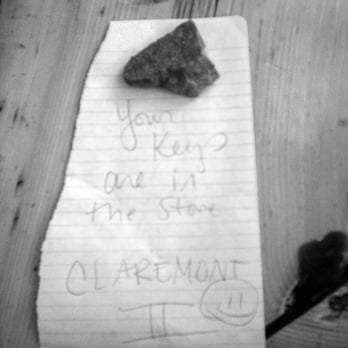 Your
Keys
are in
the Store
CLAREMONT
II